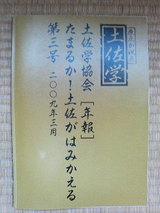 土佐学
土佐学協会［年報］
たまるか！土佐がはみかえる
第三号 二〇〇九年三月